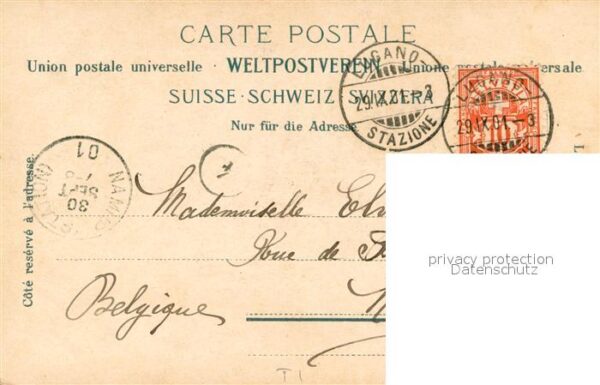 CARTE POSTALE
Union postale universelle · WELTPOSTVEREIN · Unione postale universale
SUISSE · SCHWEIZ · SVIZZERA
Nur für die Adresse
LUGANO
29.IX.01-3
STAZIONE
LUGANO
29.IX.01-3
Côté reservé à l'adresse.
NAMUR
30
SEPT
01
Mademoiselle
Rue de
Belgique
privacy protection
Datenschutz
T1